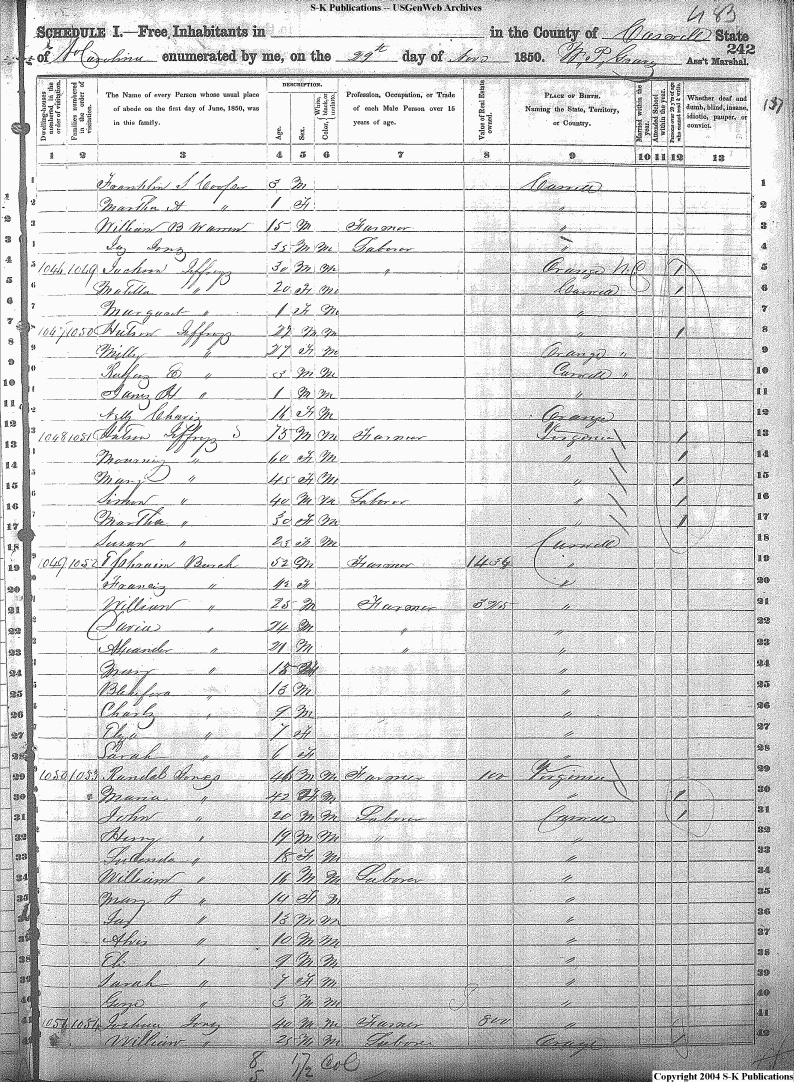 S-K Publications -- USGenWeb Archives
483
SCHEDULE I.—Free Inhabitants in in the County of Caswell State
of N Carolina enumerated by me, on the 29th day of Nov 1850. Ass't Marshal.
242
137
Dwelling-houses numbered in the order of visitation.
Families numbered in the order of visitation.
The Name of every Person whose usual place of abode on the first day of June, 1850, was in this family.
DESCRIPTION.
Age.
Sex.
White, black, or mulatto. Color
Profession, Occupation, or Trade of each Male Person over 15 years of age.
Value of Real Estate owned.
PLACE OF BIRTH. Naming the State, Territory, or Country.
Married within the year.
Attended School within the year.
Persons over 20 y'rs of age who cannot read & write.
Whether deaf and dumb, blind, insane, idiotic, pauper, or convict.
1 2 3 4 5 6 7 8 9 10 11 12 13
1 Franklin S Cooper 3 M Caswell 1
2 Martha A " 1 F " 2
3 William B Warren 15 M Farmer " 3
4 35 M M Laborer " 4
5 1046 1049 Jackson Jeffreys 30 M M " Orange NC 1 5
6 Matilda " 20 F M Caswell 1 6
7 Margaret " 1 F M " 7
8 1047 1050 Hutson Jeffreys 27 M M " 1 8
9 Milly " 27 F M Orange " 9
10 " 3 M M Caswell " 10
11 James H " 1 M M " 11
12 16 F M Orange 12
13 1048 1051 Jeffreys 75 M M Farmer Virginia 1 13
14 Mourning " 60 F M " 1 14
15 Mary " 45 F M " 1 15
16 Simon " 40 M M Laborer " 1 16
17 Martha " 30 F M " 1 17
18 Susan " 25 F M Caswell 18
19 1049 1052 Ephraim Burch 52 M Farmer 1454 " 19
20 Francis " F " 20
21 William " 25 M Farmer 325 " 21
22 " 24 M " " 22
23 Alexander " 21 M " " 23
24 Mary " 15 " 24
25 " 13 M " 25
26 Charly " 9 M " 26
27 Eliza " 7 F " 27
28 Sarah " 6 F " 28
29 1050 1053 Randal Jones 46 M M Farmer 100 Virginia 29
30 Maria " 42 F M " 1 30
31 John " 20 M M Laborer Caswell 1 31
32 Henry " 19 M M " " 32
33 Lucinda " 18 F M " 33
34 William " 16 M M Laborer " 34
35 Mary " 14 F M " 35
36 " 13 M M " 36
37 Alvis " 10 M M " 37
38 Eli " 9 M M " 38
39 Sarah " 7 F M " 39
40 " 3 M M " 40
41 1051 1054 Joshua 40 M M Farmer 800 " 41
42 William " 25 M M Laborer Orange 1 42
8/5 17/2 Col
Copyright 2004 S-K Publications